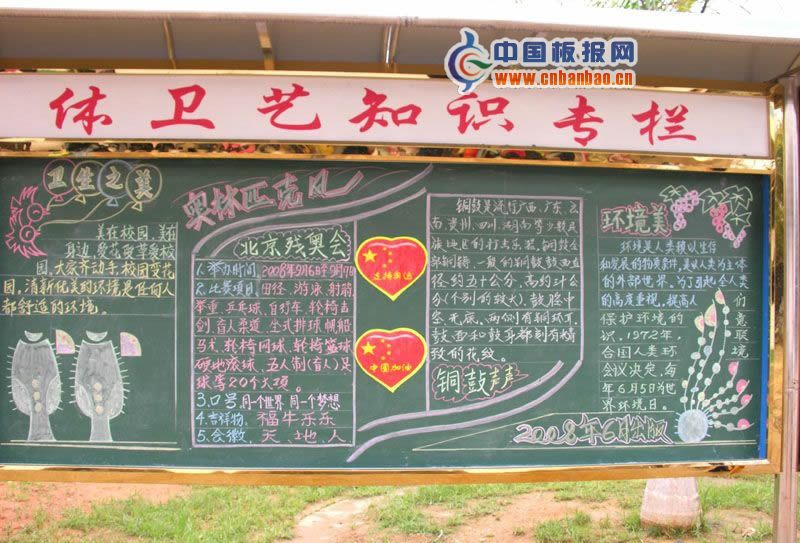 中国板报网
www.cnbanbao.cn
体卫艺知识专栏
卫生之美
美在校园,美在
身边,爱花爱草爱校
园,大家齐动手,校园变花
园,清新优美的环境是任何人
都舒适的环境。
奥林匹克风
北京残奥会
1.举办时间:2008年9月6日-9月17日
2.比赛项目:田径、游泳、射箭
举重、乒乓球、自行车、轮椅击
剑、盲人柔道、坐式排球、帆船
马术、轮椅网球、轮椅篮球
硬地滚球、五人制(盲人)足
球等20个大项。
3.口号:同一个世界 同一个梦想
4.吉祥物:福牛乐乐
5.会徽:天、地、人
迎接奥运
中国加油
铜鼓是流行广西、广东、云
南、贵州、四川、湖南等少数民
族地区的打击乐器,铜鼓全
部铜铸,一般的铜鼓鼓面直
径约五十公分,高约
公分
(个别的较大),鼓腔中
空无底,两侧有铜环耳,
鼓面和鼓身都刻有精
致的花纹。
铜鼓声声
环境美
环境是人类赖以生存
和发展的物质条件,是以人类为主体
的外部世界,为了引起全人类
的高度重视,提高人们
保护环境的意
识,1972年,联
合国人类环境
会议决定,每
年6月5日为世
界环境日。
2008年6月出版